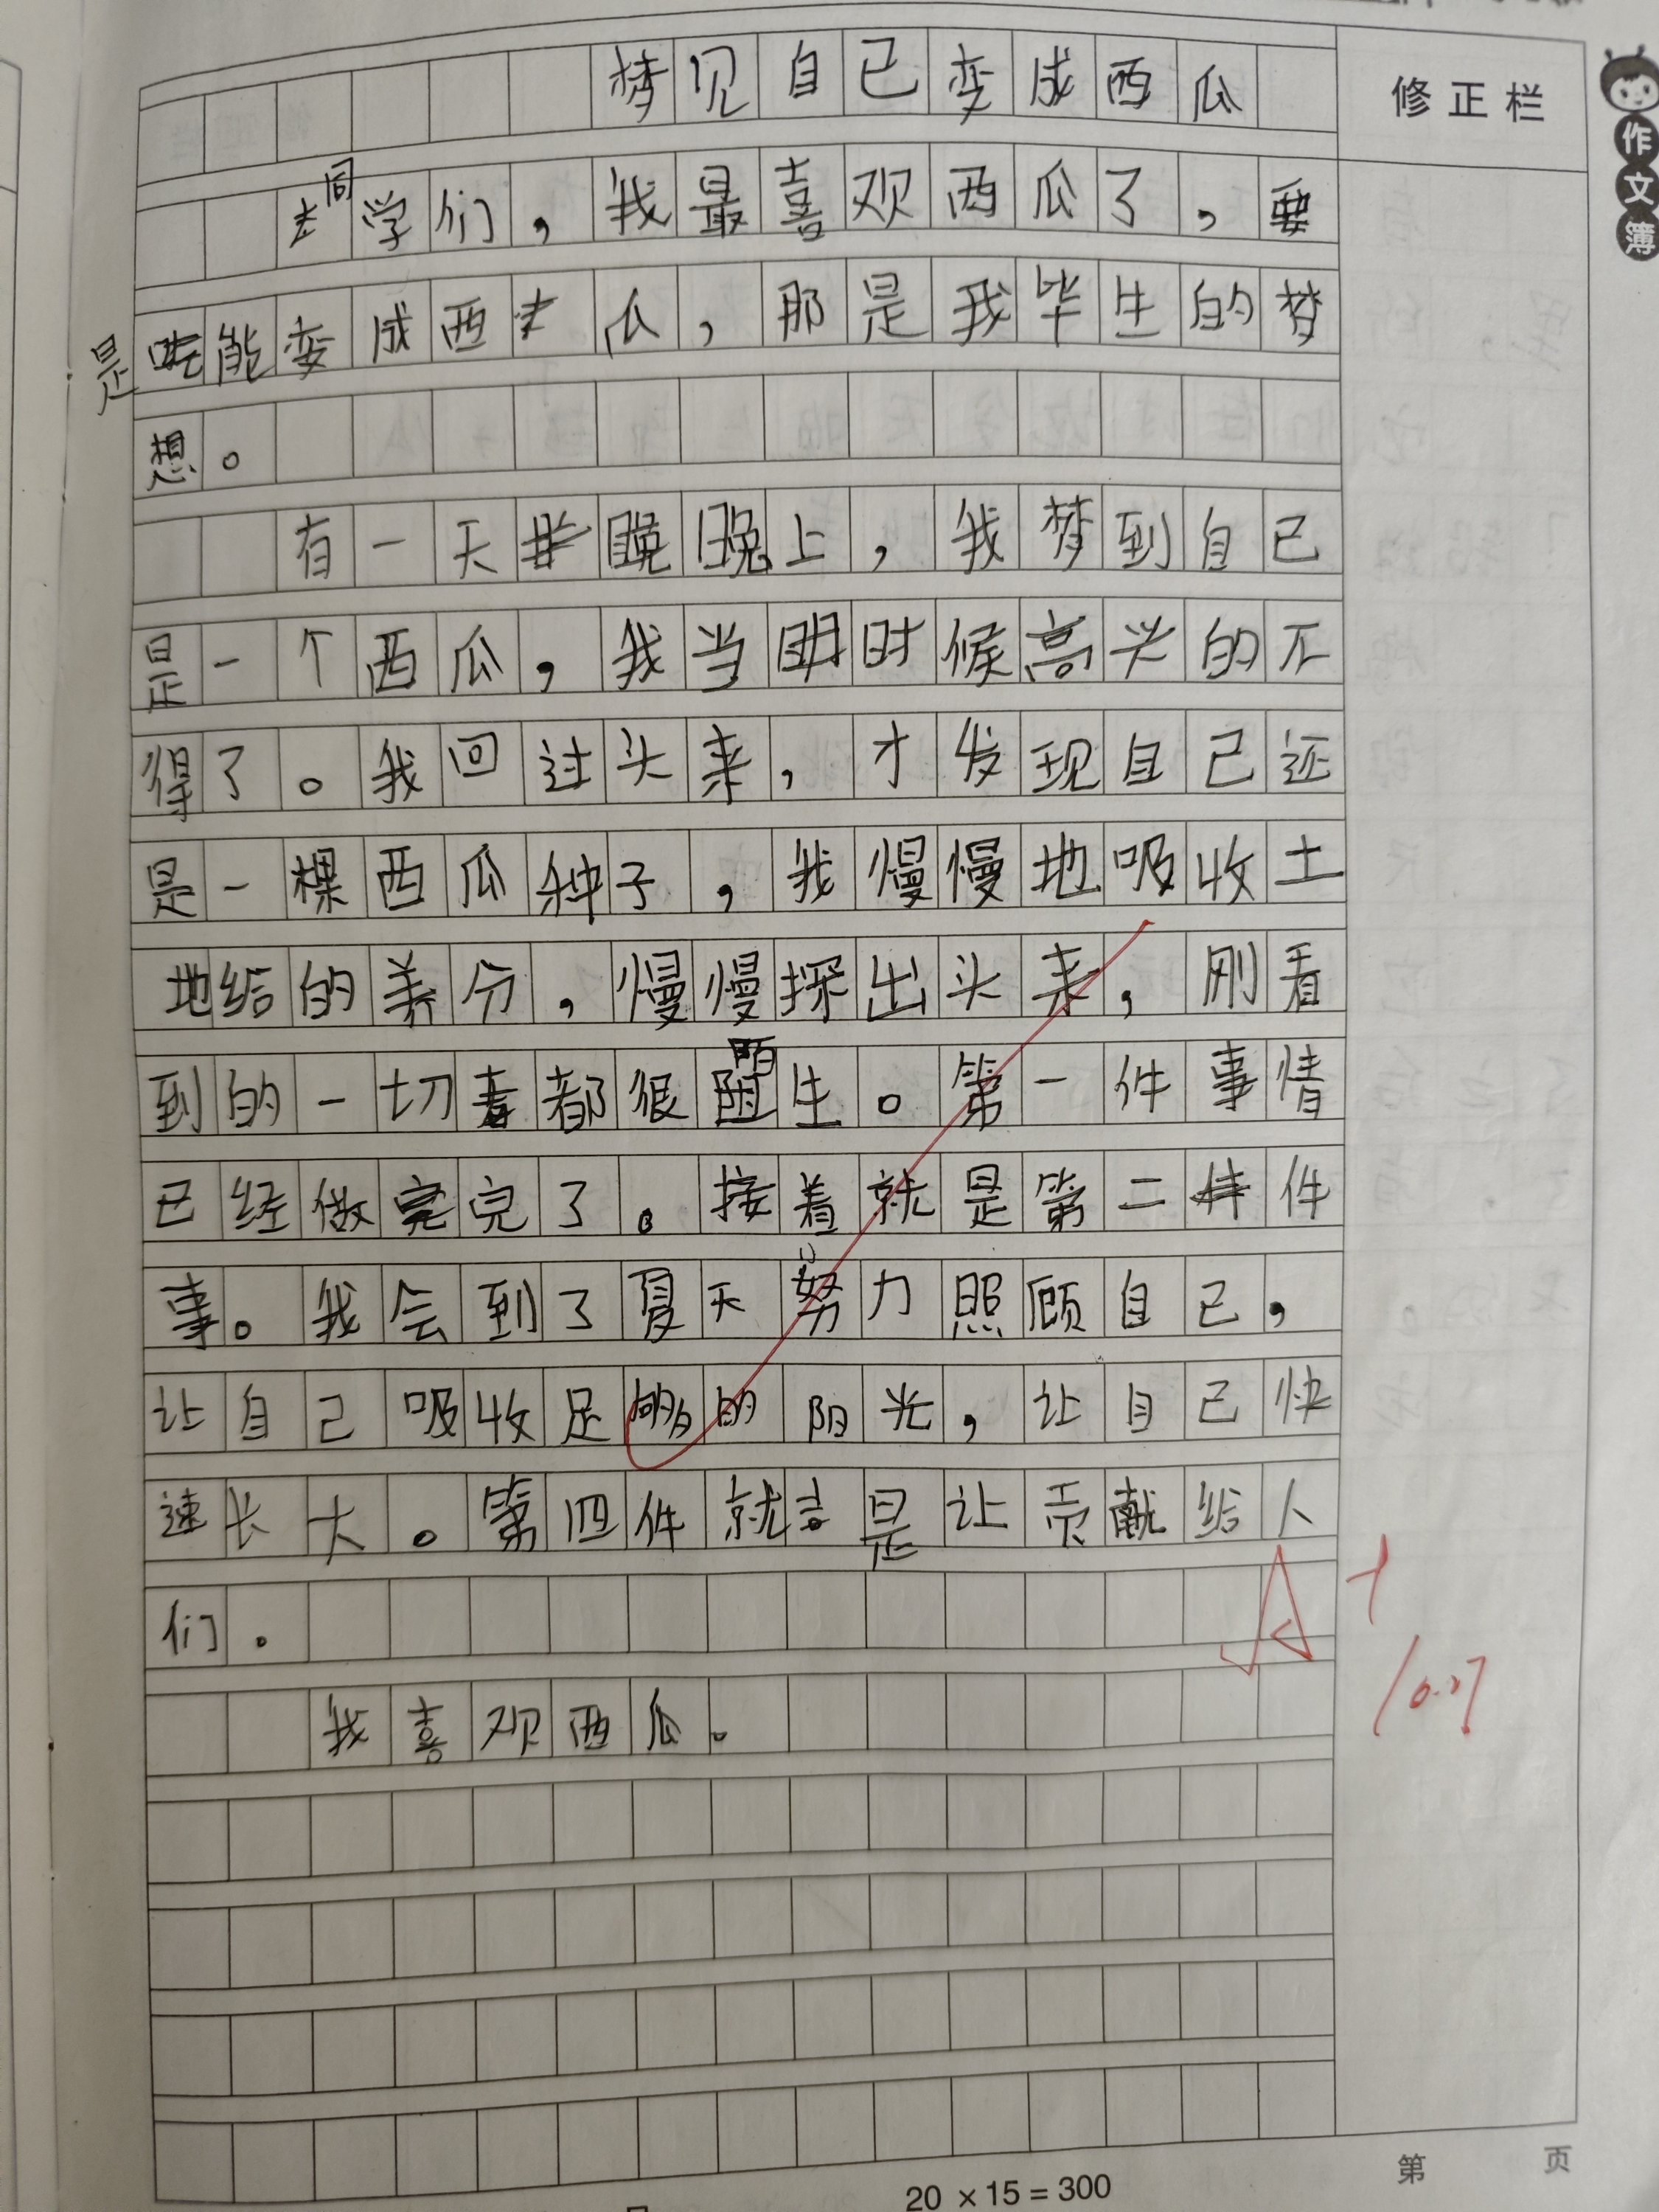 梦见自己变成西瓜
修正栏
作文簿
同学们，我最喜欢西瓜了，要
是能变成西瓜，那是我毕生的梦
想。
有一天晚上，我梦到自己
是一个西瓜，我当时候高兴的不
得了。我回过头来，才发现自己还
是一棵西瓜种子，我慢慢地吸收土
地给的养分，慢慢探出头来，刚看
到的一切都很陌生。第一件事情
已经做完了。接着就是第二件
事。我会到了夏天努力照顾自己，
让自己吸收足够的阳光，让自己快
速长大。第四件就是让贡献给人
们。
我喜欢西瓜。
A+
10.27
20×15=300
第 页